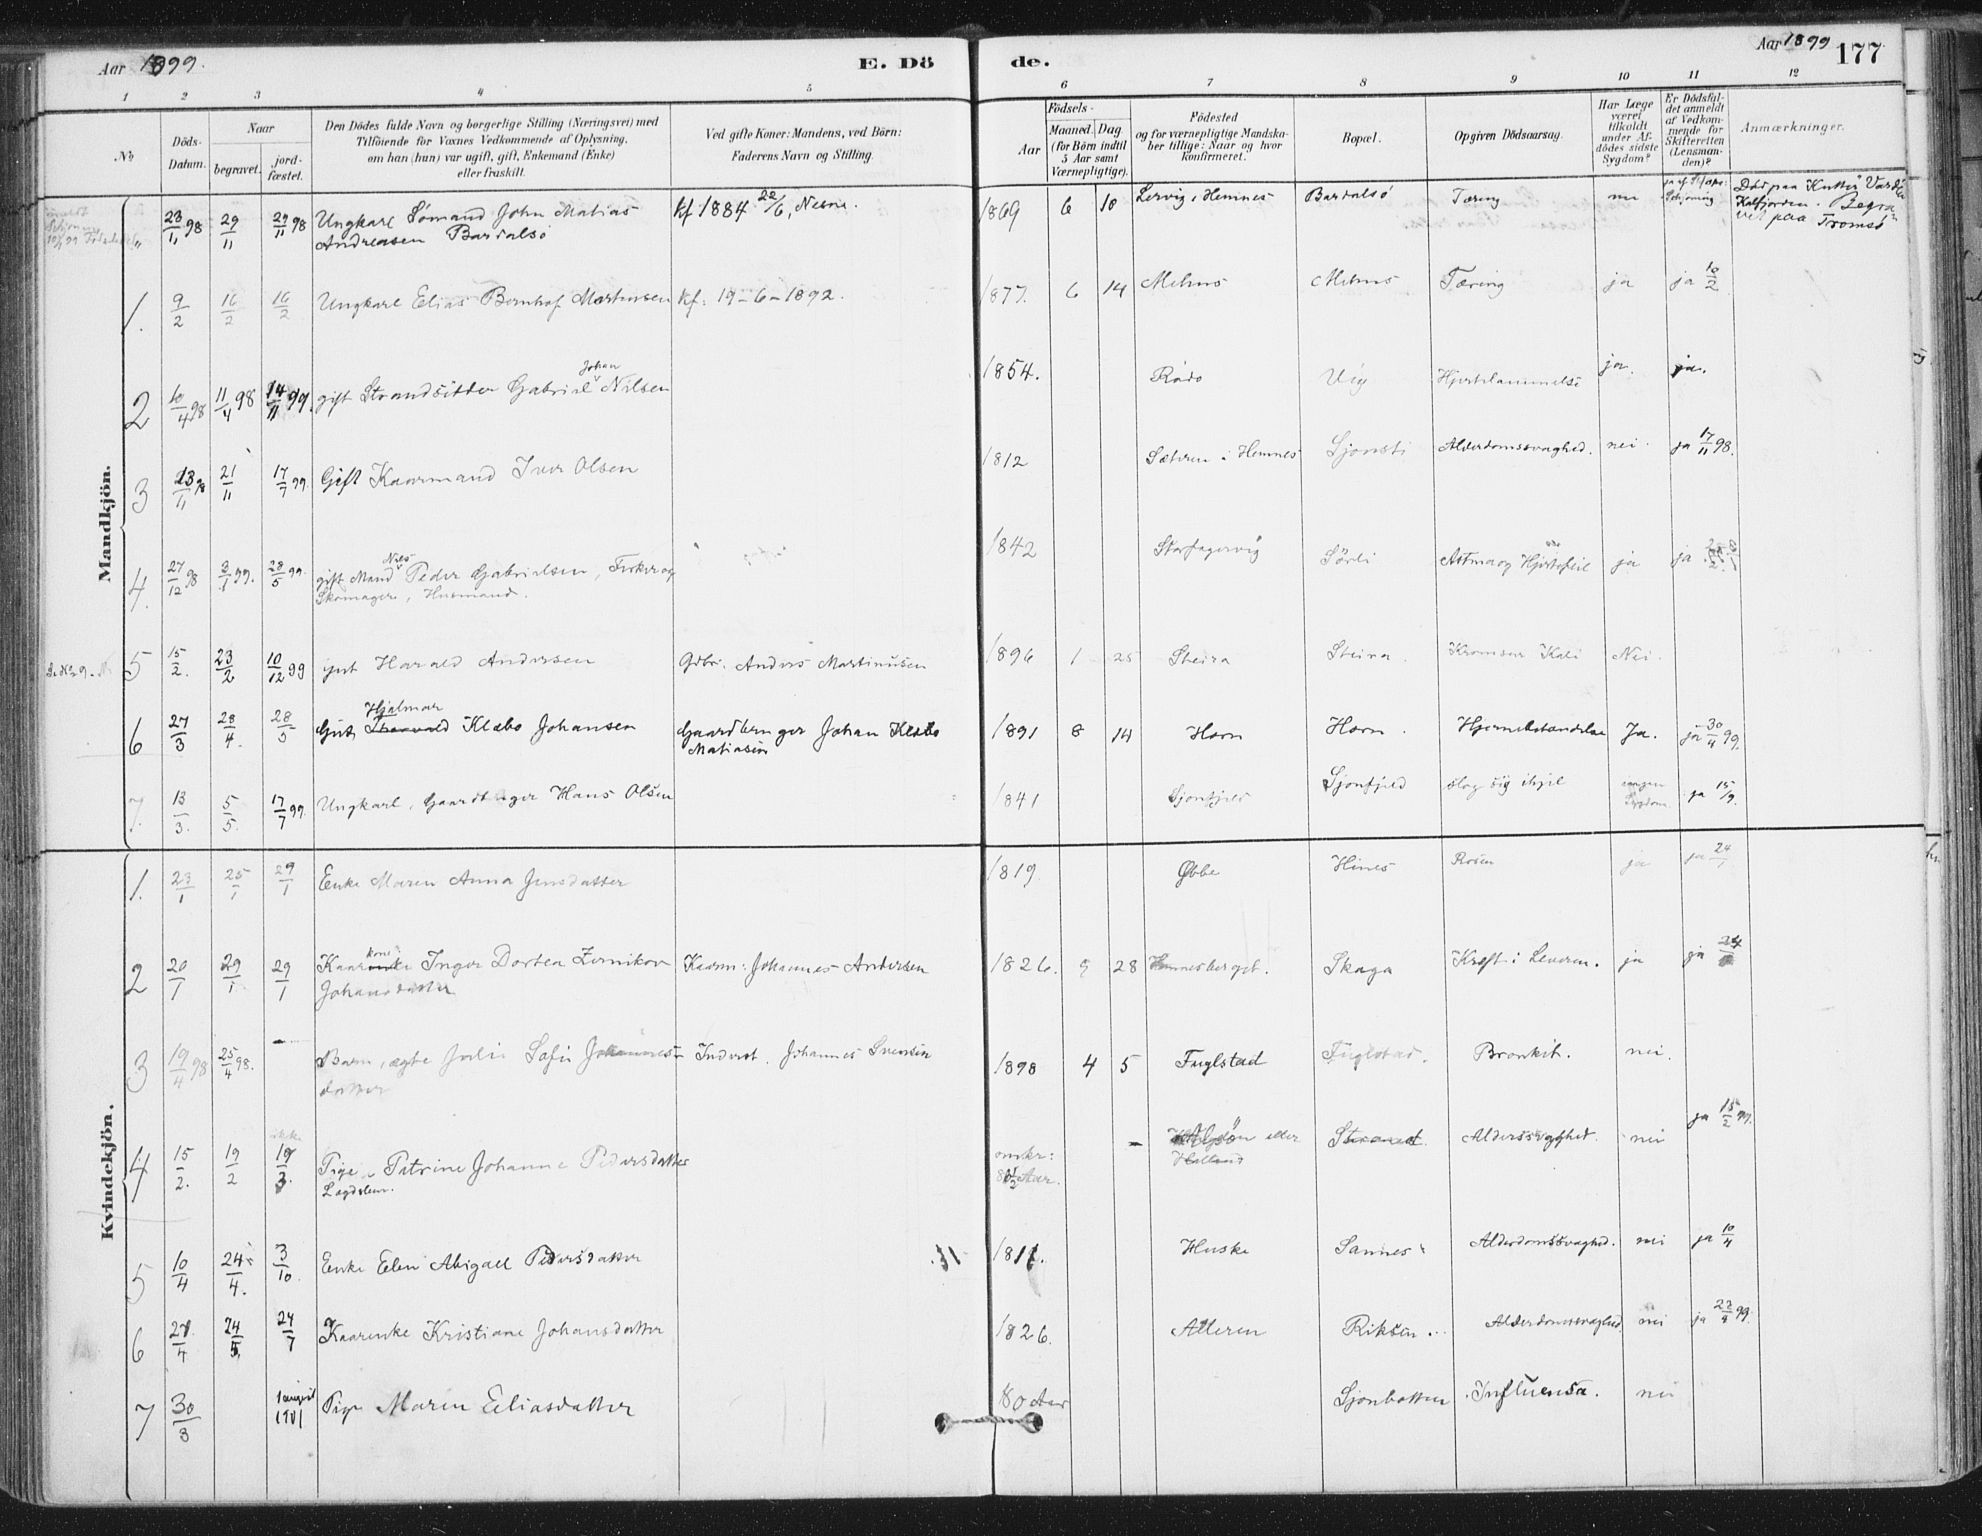 Aar 1899.
E. Dö
de.
Aar 1899
177
1 2 3 4 5 6 7 8 9 10 11 12
No
Döds-Datum.
Naar
begravet.
jord-fæstet.
Den Dödes fulde Navn og borgerlige Stilling (Næringsvei) med
Tilföiende for Voxnes Vedkommende af Oplysning.
om han (hun) var ugift, gift, Enkemand (Enke)
eller fraskilt.
Ved gifte Koner: Mandens, ved Börn:
Faderens Navn og Stilling.
Födsels-
Aar
Maaned. Dag
(for Börn indtil
5 Aar samt
Værnepligtige).
Födested
og for værnepligtige Mandska-
ber tillige: Naar og hvor
konfirmeret.
Bopæl.
Opgiven Dödsaarsag.
Har Læge
været
tilkaldt
under Af-
dödes sidste
Sygdom?
Er Dödsfal-
det anmeldt
af Vedkom-
mende for
Skifteretten
(Lensman-
den)?
Anmærkninger.
Mandkjön.
" 23/11 98 29/11 29/11 98 Ungkarl Sömand John Matias Kf 1884 22/6, Nesne. 1869 6 10 Lervig i Hemnes Bardalsö Tæring Död paa "Kutter" Vardö
Andreasen Bardalsö Kalfjorden. Begra
vet paa Tromsö
1. 9/2 16/2 16/2 Ungkarl Elias Bernhof Martinsen Kf: 19-6-1892. 1877. 6 14 Mehus Mehus Tæring ja ja 10/2
2 10/4 98 11/4 98 14/11 99. gift Strandsitter Gabriel Johan Nilsen 1854. Rödö Vig Hjertelammelse ja. ja.
3 23/11 98 21/11 17/7 99 Gift Kaarmand Iver Olsen 1812 Sæteren i Hemnes Sjonsti Alderdomssvaghed. nei. ja 17/11 98.
4. 27/12 98 3/1 99. 28/5 99. gift Mand Nils Peder Gabrielsen, Fisker og 1842 Storfagervig Sörli Astma og Hjertefeil ja ja
Skomager, Husmand.
5 15/2. 23/2 10/12 99 gut Harald Andersen Gdbr. Anders Martinusen 1896 1 25 Steira Steira. Nei.
6 27/3 28/4. 28/5 Gut Hjalmar Klæbo Johansen Gaardbruger Johan Klæbo 1891 8 14 Horn Horn. Hjernebetændelse Ja. ja 30/4 99.
Matiasen
7. 13/3. 5/5. 17/7 99. Ungkarl, Gaardbruger Hans Olsen 1841 Sjonfjeld Sjonfjeld slog sig ihjel ingen Sygdom. ja 15/9.
Kvindekjön.
1. 23/1 25/1 29/1 Enke Maren Anna Jensdatter 1819. Öbbe Hines Rosen ja ja 24/1
2 20/1 29/1 29/1 Kaarkone Inger Dortea Zernikov Kaarm: Johannes Andersen 1826. 9 28 Hemnesberget. Skaga Kræft i Leveren. ja ja 24
Johansdatter
3 19/4 98 25/4 98. - Barn, ægte Julie Sofie Johannes- Inderst. Johannes Svensen 1898 4 5 Fuglstad Fuglstad. Bronkit. nei.
datter
4 15/2. 19/2 ikke 19/3. Pige, Petrine Johanne Pedersdatter omkr: Alsöen eller Strand. nei ja 15/2 99.
Lægdslem. Aar. Helland
5 10/4 24/4. 3/10. Enke Elen Abigael Pedersdatter 1811. Huske Sannes Alderdomssvaghed. nei ja 10/4
6 21/4 24/5. 24/7 Kaarenke Kristiane Johansdatter 1826. Alteren Riksen Alderdomssvaghed nei ja 22/4 99.
7 30/3 1 august 1901 Pige Maren Eliasdatter 80 Aar Sjonbotten Influensa. nei